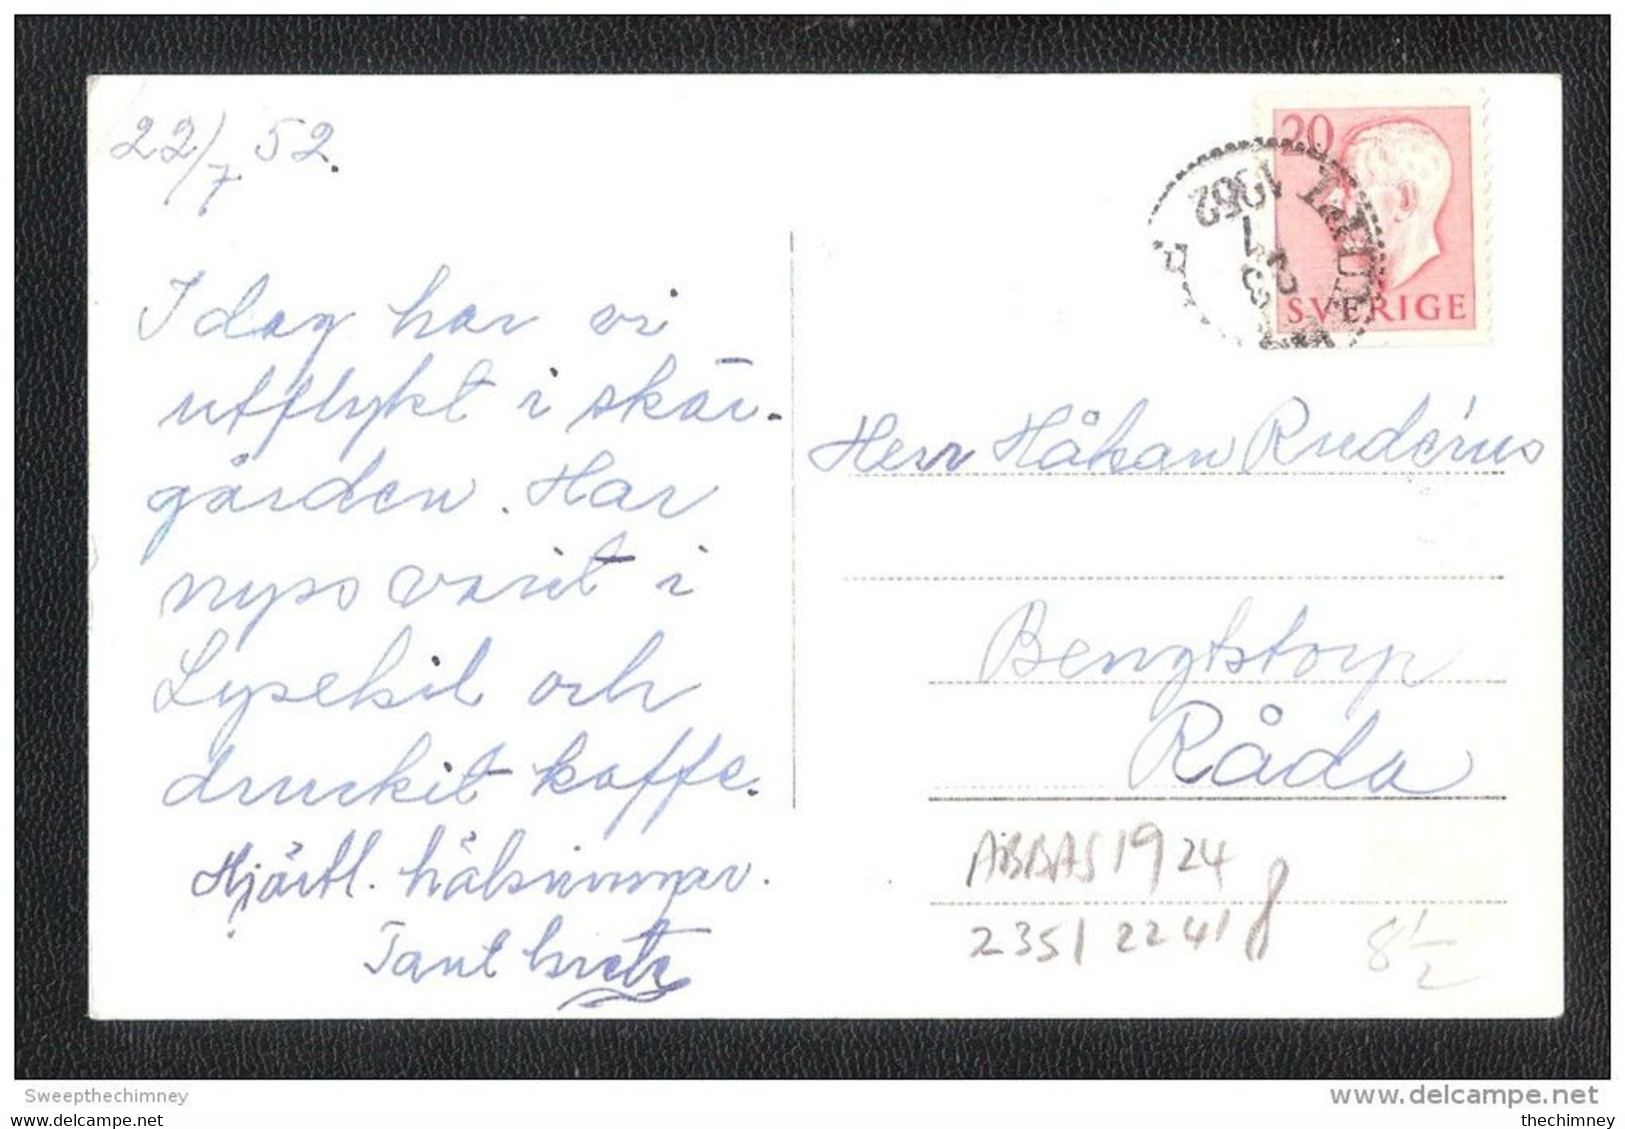 22/7 52.
I dag har vi
utflykt i skär-
gården. Har
nyss varit i
Lysekil och
druckit kaffe.
Hjärtl. hälsningar.
Tant
20
SVERIGE
1952
Herr Håkan Rudérus
Bengtstorp
Råda
ABBAS 1924
2351 2241
8 1/2
Sweepthechimney
delcampe.net
thechimney